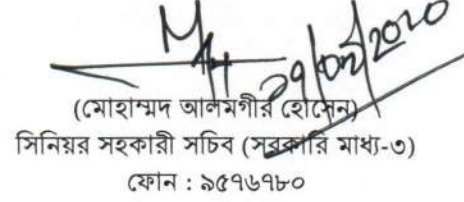 (মোহাম্মদ আলমগীর হোসেন)
সিনিয়র সহকারী সচিব (সরকারি মাধ্য-৩)
ফোন : ৯৫৭৬৭৮০